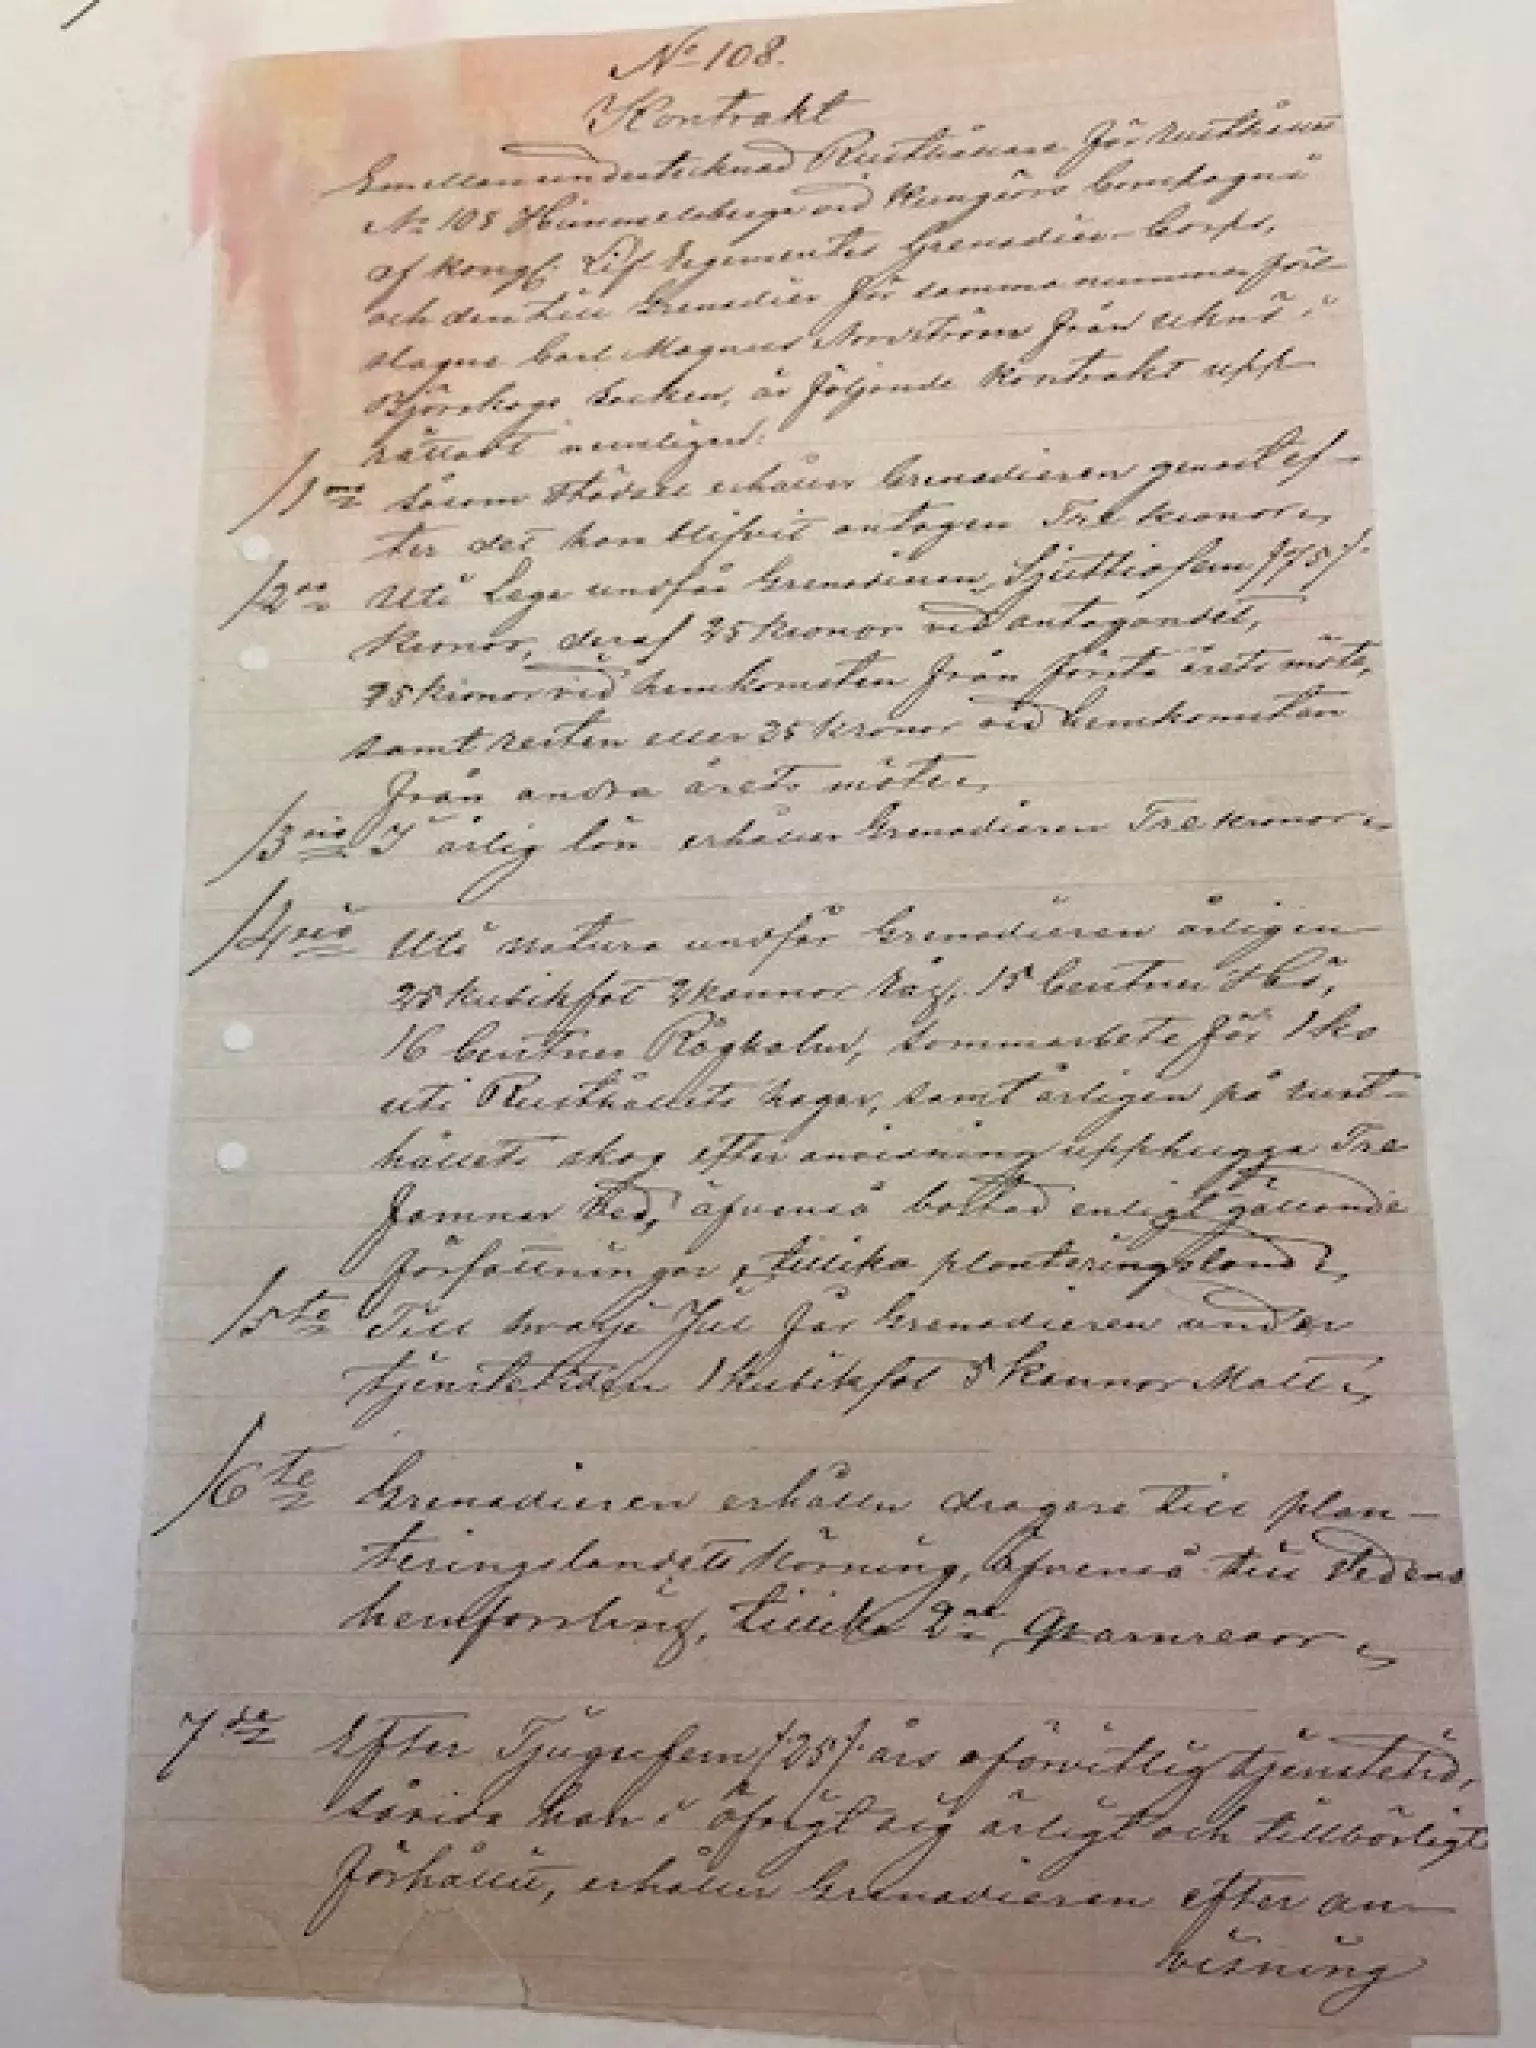 No 108.
Kontrakt
Emellan undertecknad Rusthållare för Rusthållet
No 108 Himmelsberga vid Kungsörs Compagni
af Kongl. Lif Regementes Grenadier-Corps,
och den till Grenadier för samma nummer före-
slagne Carl Magnus Norström från Uknö i
Björskogs Socken, är följande Kontrakt upp-
rättadt nemligen:
1mo Såsom städsel erhåller Grenadieren genast ef-
ter det han blifvit antagen Tre kronor
2do Uti Lega undfår Grenadieren Sjuttiofem /75/.
kronor, deraf 25 kronor vid antagandet,
25 kronor vid hemkomsten från första årets möte,
samt resten eller 25 kronor vid hemkomsten
från andra årets möte
3tio I årlig lön erhåller Grenadieren Tre kronor
4to Uti natura undfår Grenadieren årligen
25 kubikfot 2 kannor Råg, 15 Centner Hö,
16 Centner Råghalm, sommarbete för 1 ko
uti Rusthållets hagar, samt årligen på rust-
hållets skog efter anvisning upphugga Tre
famnar Ved, äfvenså bostad enligt gällande
författningar, tillika planteringsland
5te Till hvarje Jul får Grenadieren under
tjenstetiden 1 Kubikfot 5 kannor Malt
6te Grenadieren erhåller dragare till plan-
teringslandets körning, äfvenså till Vedens
hemforsling, tillika 2ne Qvarnresor
7de Efter Tjugufem /25/. års oförvitlig tjenstetid,
såvida han i öfrigt sig ärligt och tillbörligt
förhållit, erhåller Grenadieren efter an-
visning